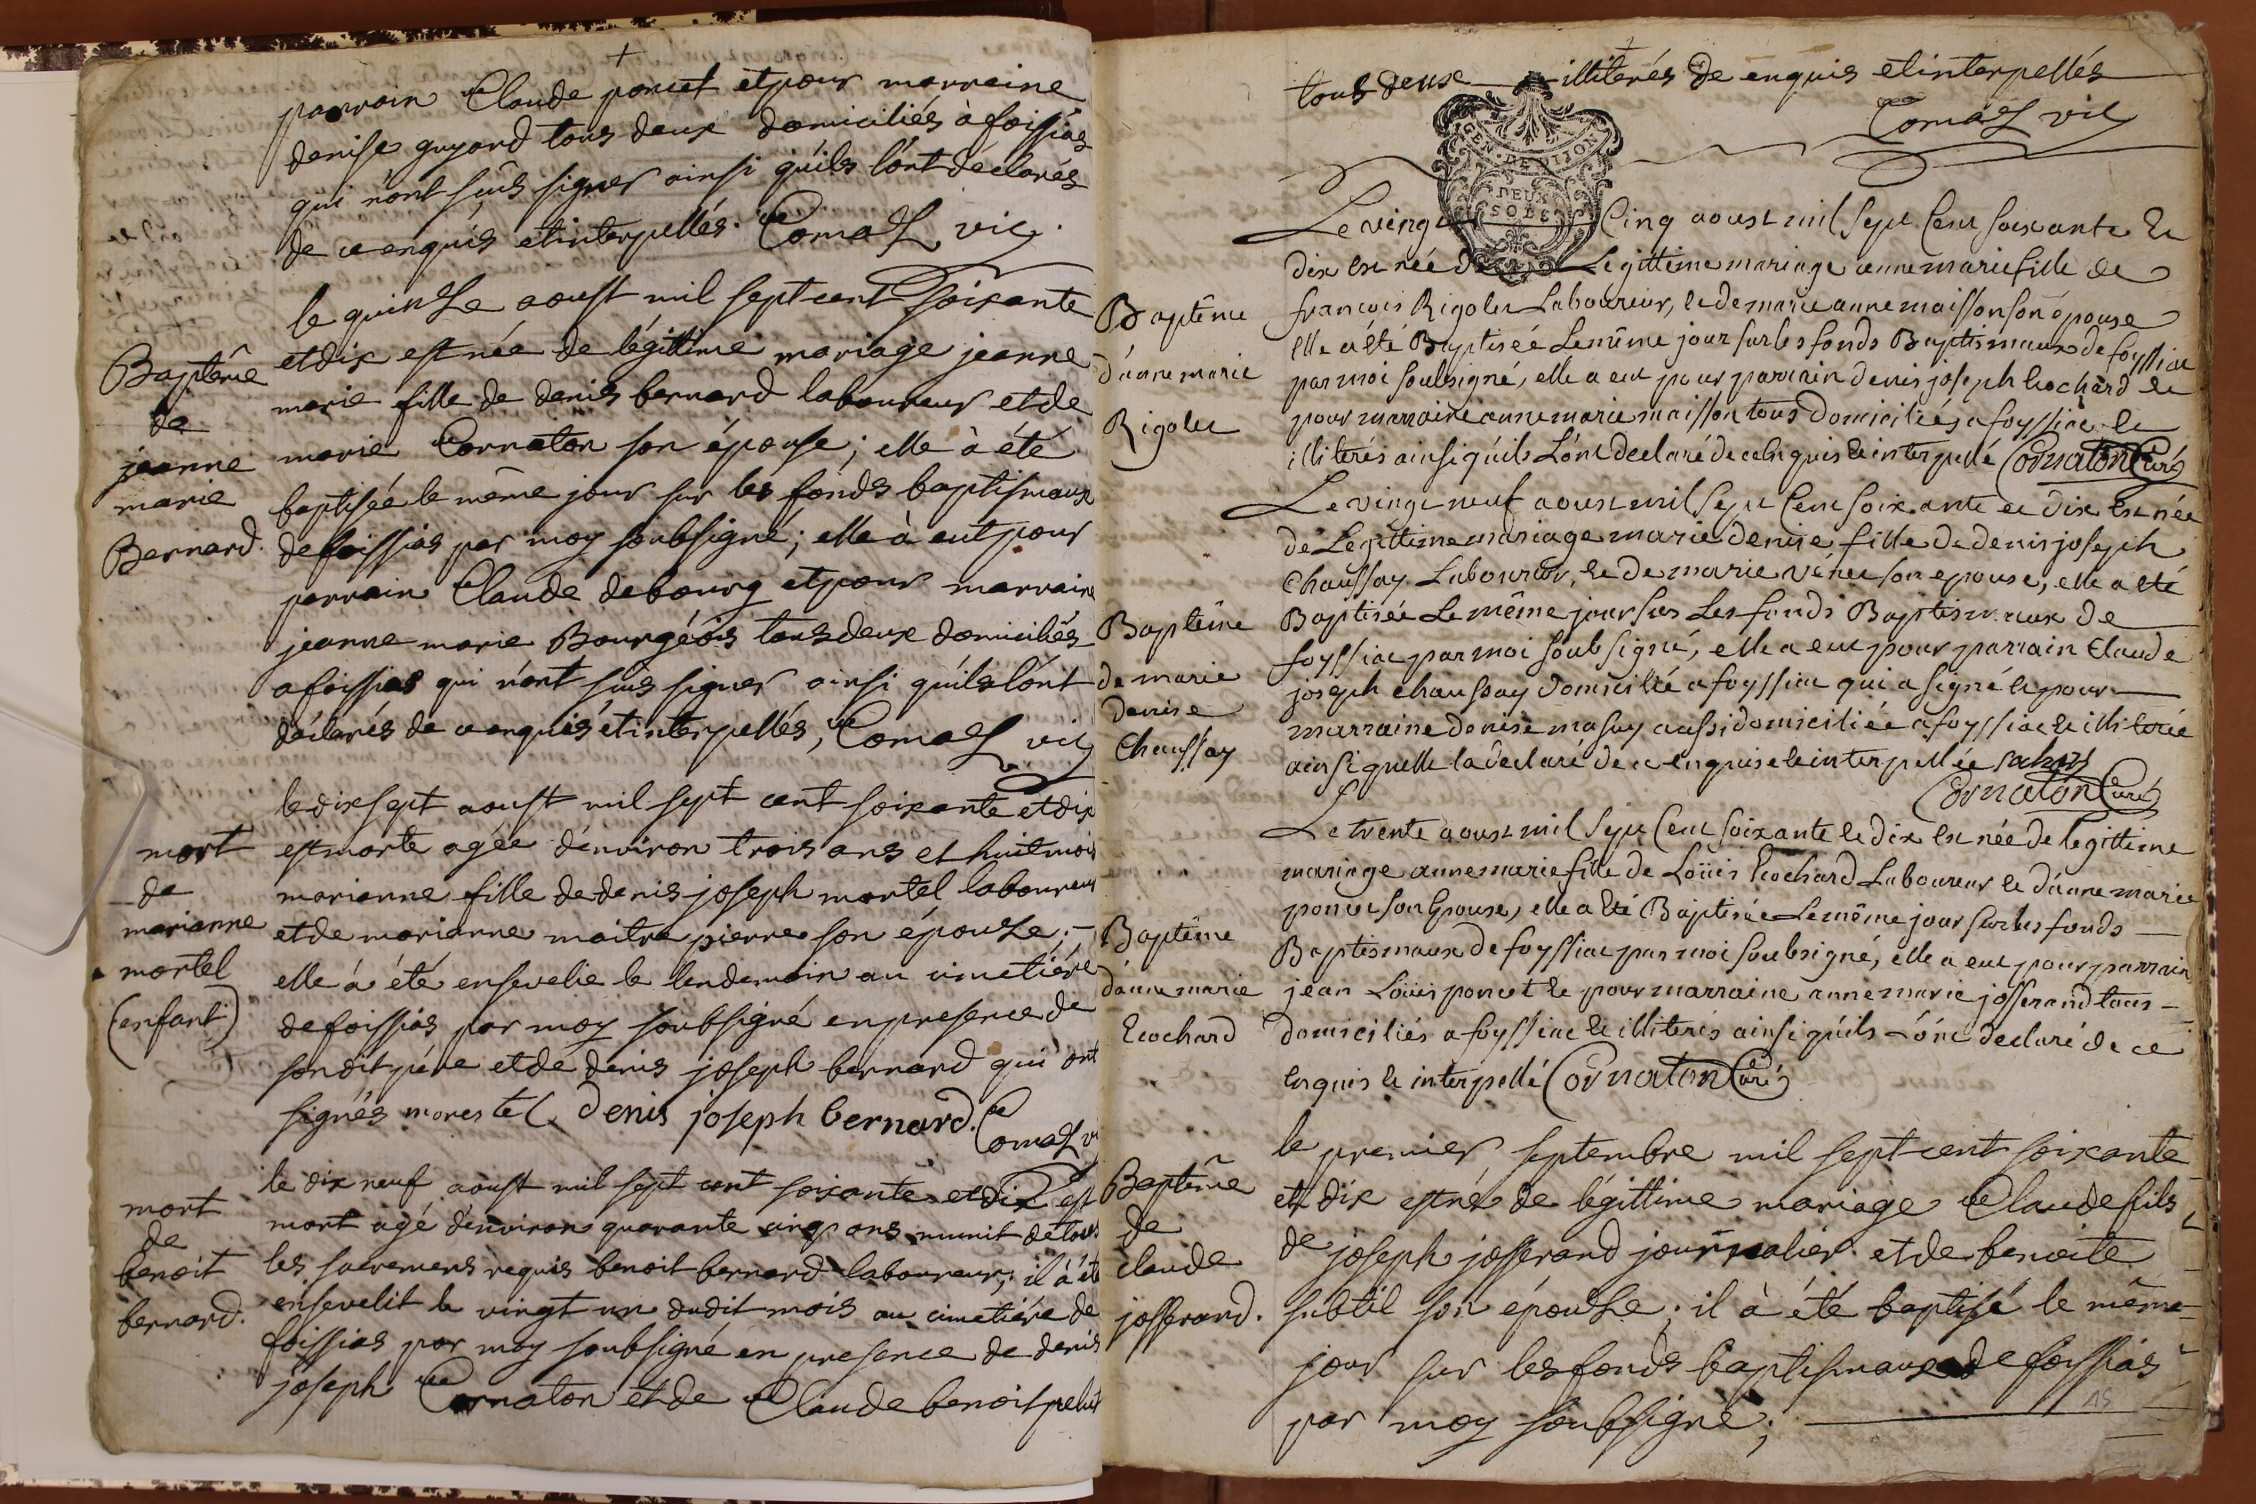 parrain Claude poncet et pour marraine
denise guyard tous deux domiciliés à foissias
qui n'ont sçus signer ainsi qu'ils l'ont déclarés
de ce enquis et interpellés. Comas vic.
Baptême
de
jeanne
marie
Bernard.
le quinse aoust mil sept cent soixante
et dix est née de légittime mariage jeanne
marie fille de denis bernard laboureur et de
marie Cornaton son épouse; elle à été
baptisée le même jour sur les fonds baptismaux
de foissias par moy soubsigné; elle à eut pour
parrain Claude debourg et pour marraine
jeanne marie Bourgéois tous deux domiciliés
a foissias qui n'ont sçus signer ainsi qu'ils l'ont
déclarés de ce enquis et interpellés, Comas vic
mort
de
marianne
mortel
(enfant)
le dix sept aoust mil sept cent soixante et dix
est morte agée d'environ trois ans et huit mois
marianne fille de denis joseph mortel laboureur
et de marianne maitre pierre son épouse.
elle à été ensevelie le lendemain au cimetiére
de foissias par moy soubsigné en presence de
son dit pére et de denis joseph bernard qui ont
signés denis joseph bernard. Comas
mort
de
benoit
bernard.
le dix neuf aoust mil sept cent soixante et dix est
mort agé d'environ quarante cinq ans munit de tous
les sacremens requis benoit bernard laboureur; il à été
ensevelit le vingt un dudit mois au cimetiére de
foissias par moy soubsigné en presence de denis
joseph Cornaton et de Claude benoit
tous deux illiterés de enquis et interpellés
Comas vic
GEN. DE DIJON
DEUX
SOLS
Baptême
d'anne marie
Rigolet
Le vingt Cinq aoust mil sept Cent soixante et
dix est née de Legittime mariage anne marie fille de
francois Rigolet Laboureur, et de marie anne maisson son épouse
elle a été Baptisée Le même jour sur les fonds Baptismaux de foyssiac
par moi soubsigné, elle a eut pour parrain denis joseph Ecochard et
pour marraine anne marie maisson tous domiciliés a foyssiac et
illiterés ainsi qu'ils L'ont declaré de ce Enquis et interpellé Cornaton Curé
Baptême
de marie
denise
Chaussay
Le vingt neuf aoust mil sept Cent soixante et dix Est née
de Legittime mariage marie denise fille de denis joseph
Chaussay Laboureur, et de marie son epouse, elle a été
Baptisée Le même jour sur Les fonds Baptismaux de
foyssiac par moi soubsigné, elle a eut pour parrain Claude
joseph chaussay domicilié a foyssiac qui a signé et pour
marraine denise aussi domiciliée a foyssiac et illiterée
ainsi quelle la declaré de ce enquise et interpellée
Cornaton Curé
Baptême
d'anne marie
Ecochard
Le trente aoust mil sept Cent soixante et dix Est née de legittime
mariage anne marie fille de Loüis Ecochard Laboureur et d'anne marie
poncet son Epouse, elle a été Baptisée Le même jour sur les fonds
Baptismaux de foyssiac par moi soubsigné, elle a eut pour parrain
jean Loüis poncet et pour marraine anne marie josserand tous
domiciliés a foyssiac et illiterés ainsi qu'ils L'ont declaré de ce
Enquis et interpellé Cornaton Curé
Baptême
de
claude
josserand.
le premier septembre mil sept cent soixante
et dix est né de légittime mariage Claude fils
de joseph josserand journalier et de benoite
subtil son épouse; il à été baptisé le même
jour sur les fonds baptismaux de foissias
par moy soubsigné;
15